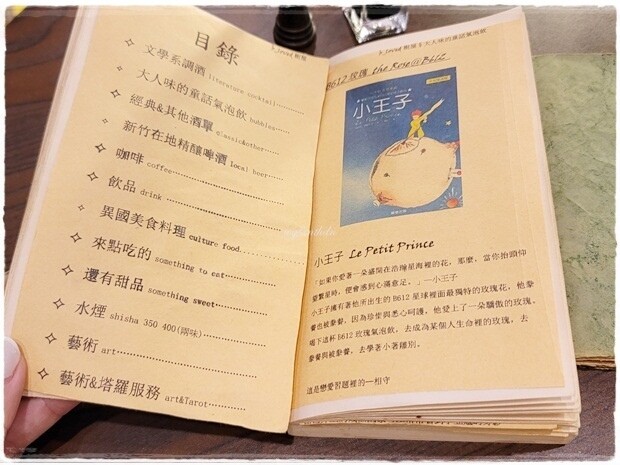 目錄
文學系調酒 literature cocktail
大人味的童話氣泡飲 bubbles
經典&其他酒單 classic&other
新竹在地精釀啤酒 local beer
咖啡 coffee
飲品 drink
異國美食料理 culture food
來點吃的 something to eat
還有甜品 something sweet
水煙 shisha 350 400(兩味)
藝術 art
藝術&塔羅服務 art&Tarot
大人味的童話氣泡飲
B612 玫瑰 the Rose@B612
小王子
Le Petit Prince
小王子 Le Petit Prince
「如果你愛著一朵盛開在浩瀚星海裡的花，那麼，當你抬頭仰
望繁星時，便會感到心滿意足。」—小王子
小王子擁有著他所出生的B612星球裡面最獨特的玫瑰花，他豢
養也被豢養，因為珍惜與悉心呵護，他愛上了一朵驕傲的玫瑰，
喝下這杯B612玫瑰氣泡飲，去成為某個人生命裡的玫瑰，去
豢養與被豢養，去學著小著離別。
這是戀愛習題裡的一相守